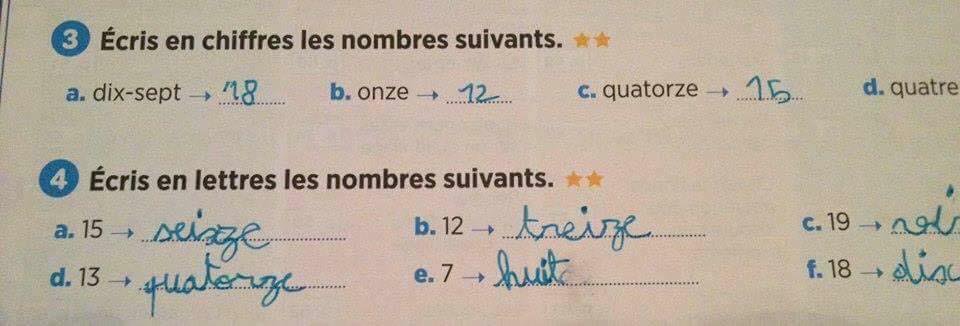 3 Écris en chiffres les nombres suivants.
a. dix-sept → 18 b. onze → 12 c. quatorze → 15 d. quatre
4 Écris en lettres les nombres suivants.
a. 15 → seisze b. 12 → treize c. 19 →
d. 13 → quatorze e. 7 → huit f. 18 →